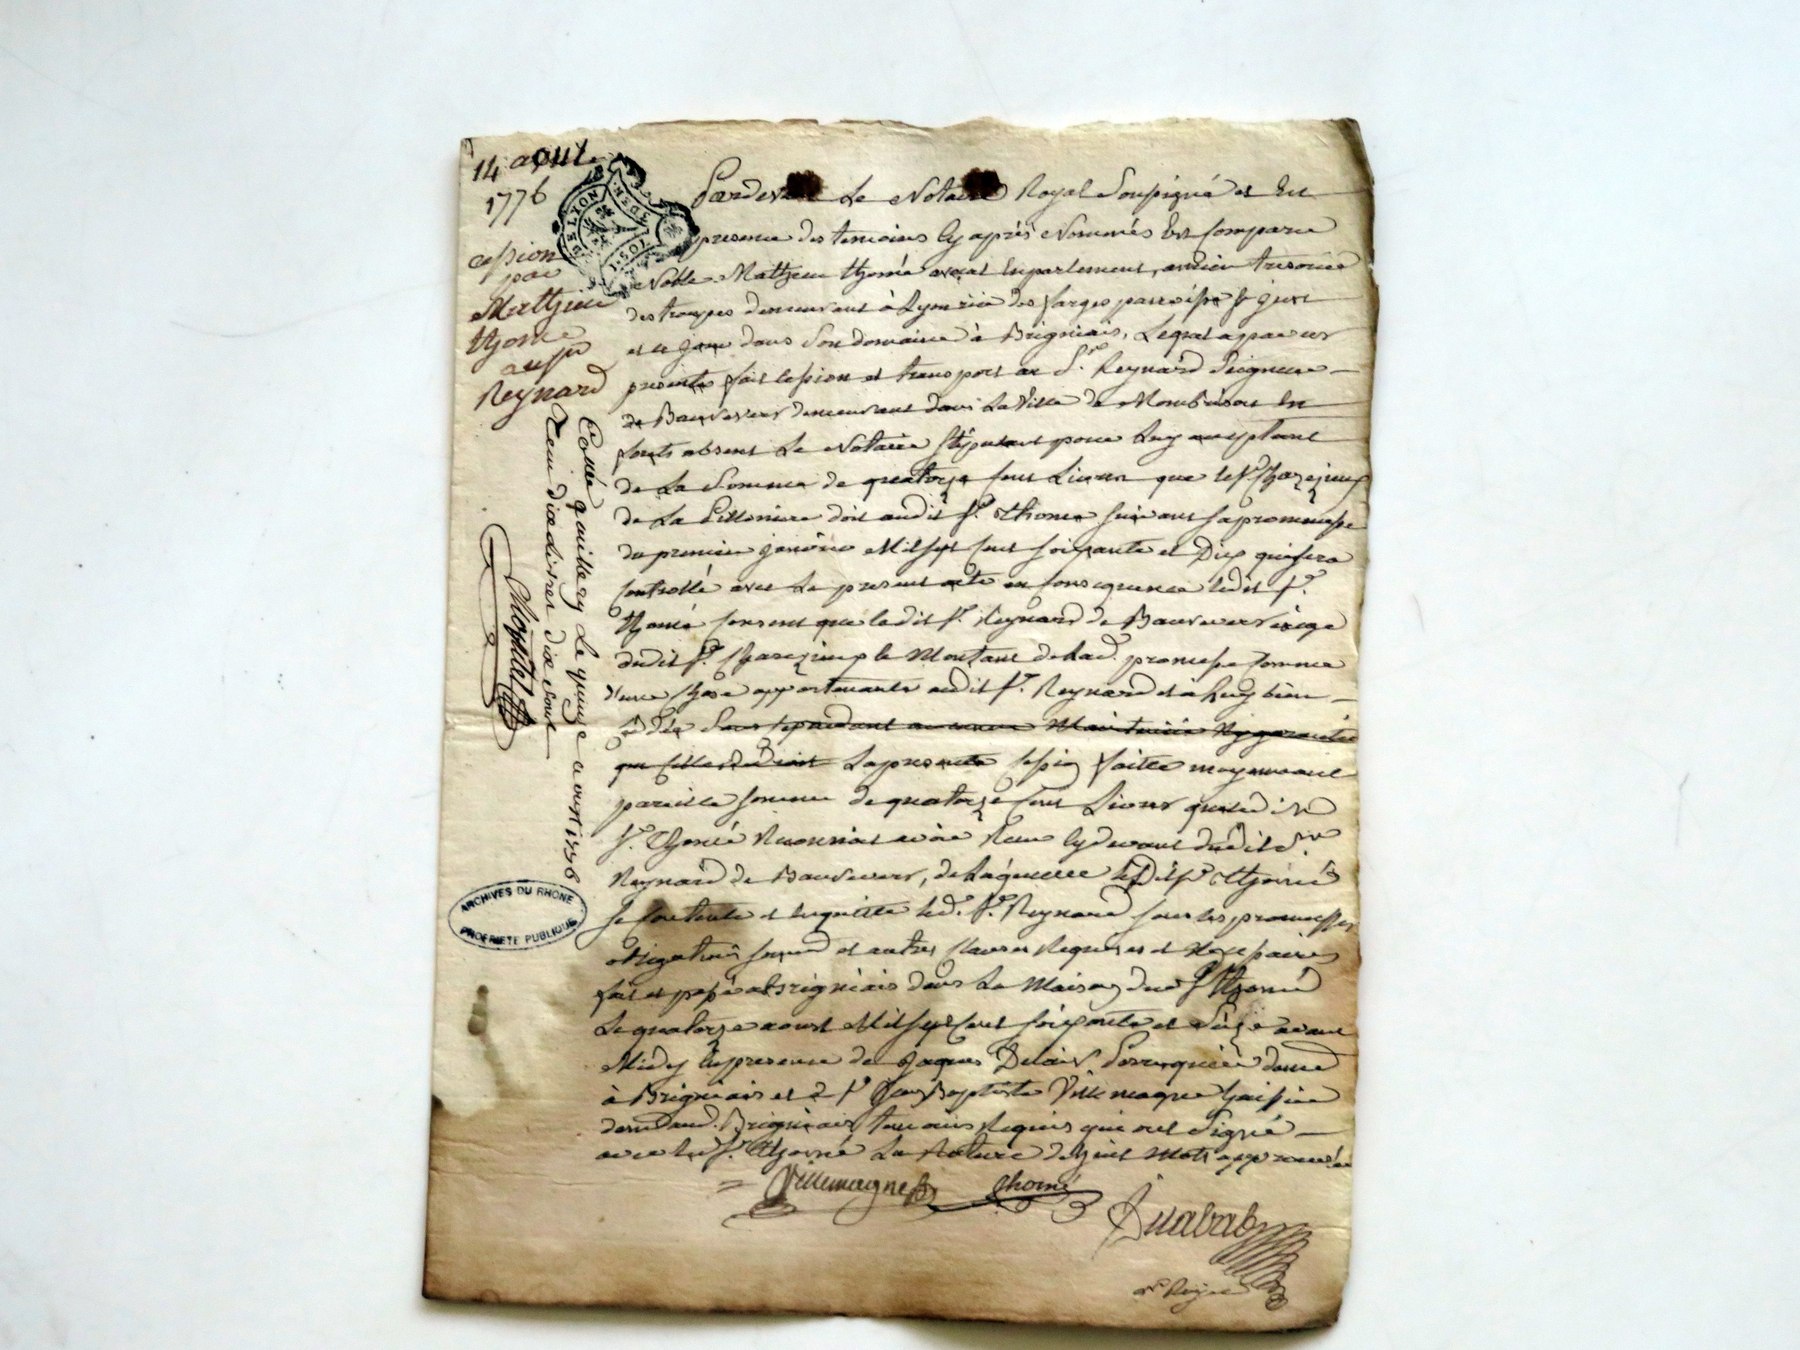 14 aoust
1776
cession
par
Mathieu
thomé
au sr
Reynard
DE LYON
1.SOL
3.DEN
Pardevant Le Notaire Royal Soussigné et En
presence des temoins cy après Nommés Est Comparu
Noble Mathieu thomé avocat En parlement, ancien tresorier
des troupes demeurant à Lyon rüe des farges parroisse st just
et ce jour dans Son domaine à Brigniais, Lequel a par ces
presentes fait Cession et transport au Sr. Reynard Seigneur
de Beauvever demeurant dans La Ville de Montbrison En
forets absent Le Notaire Stipulant pour Luy acceptant
de La Somme de quatorze Cent Livres que le Sr
de La doit audit Sr. thomé suivant sa promesse
du premier janvier Mil Sept Cent soixante et Dix qui sera
Controllé avec Le present acte en Consequence ledit Sr.
thomé Consent que ledit Sr. Reynard de Beauvever exige
dudit Sr. le Montant de lad. promesse Comme
d'une chose appartenante audit Sr. Reynard et à Luy bien
cedée Sans cependant aucune Maintenüe Ny garantie
La presente Cession faitte moyennant
pareille somme de quatorze Cent Livres que ledit
Sr. thomé Reconnoit avoir Reçu cy devant dudit Sr.
Reynard de Beauvever, de Laquelle Ledit Sr thomé
Se Contente et En quitte led. Sr. Reynard sous les promesses
obligations soumd et autres Clauses Requises et Necessaires
fait et passé a Brigniais dans La Maison dud Sr thomé
Le quatorze aoust Mil Sept Cent soixante et Seize avant
Midy En presence de Jaques Perruquier demt
à Brigniais et de Sr Jean Baptiste Villemagne huissier
demt aud. Brigniais temoins Requis qui ont Signé
avec led Sr. thomé La Rature de huit Mots approuvée
Villemagne thomé
Duabab
Nre Royal
Collé quittery Le quinze aoust 1776
Reçu dix Livres dix sous
ARCHIVES DU RHÔNE
PROPRIÉTÉ PUBLIQUE